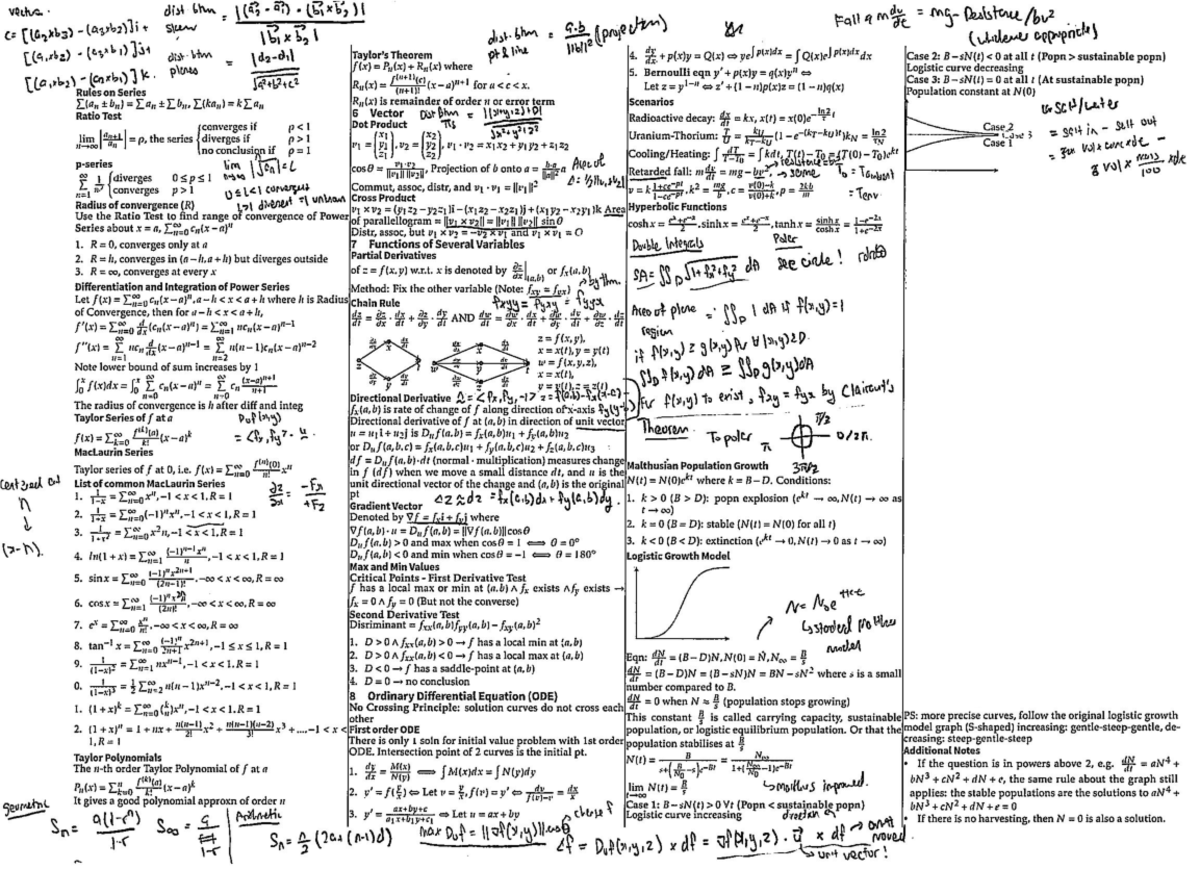 vector.
c= [(a₂×b₃) - (a₃×b₂)]i +
[(a₃×b₁) - (a₁×b₃)]j+
[(a₁×b₂) - (a₂×b₁)]k.
dist. btwn skew = |(a⃗₂ - a⃗₁)·(b⃗₁×b⃗₂)| / |b⃗₁×b⃗₂|
dist btwn planes = |d₂-d₁| / √a²+b²+c²
Rules on Series
∑(aₙ ± bₙ) = ∑aₙ ± ∑bₙ, ∑(kaₙ) = k∑aₙ
Ratio Test
lim n→∞ |aₙ₊₁/aₙ| = ρ, the series { converges if ρ < 1
diverges if ρ > 1
no conclusion if ρ = 1
p-series
∑ₙ₌₁^∞ 1/nᵖ { diverges 0 ≤ p ≤ 1
converges p > 1
Radius of convergence (R)
Use the Ratio Test to find range of convergence of Power
Series about x = a, ∑ₙ₌₀^∞ cₙ(x−a)ⁿ
1. R = 0, converges only at a
2. R = h, converges in (a−h, a+h) but diverges outside
3. R = ∞, converges at every x
Differentiation and Integration of Power Series
Let f(x) = ∑ₙ₌₀^∞ cₙ(x−a)ⁿ, a−h < x < a+h where h is Radius
of Convergence, then for a−h < x < a+h,
f′(x) = ∑ₙ₌₀^∞ d/dx (cₙ(x−a)ⁿ) = ∑ₙ₌₁^∞ ncₙ(x−a)ⁿ⁻¹
f″(x) = ∑ₙ₌₁^∞ ncₙ d/dx (x−a)ⁿ⁻¹ = ∑ₙ₌₂^∞ n(n−1)cₙ(x−a)ⁿ⁻²
Note lower bound of sum increases by 1
∫₀ˣ f(x)dx = ∫₀ˣ ∑ₙ₌₀^∞ cₙ(x−a)ⁿ = ∑ₙ₌₀^∞ cₙ (x−a)ⁿ⁺¹/n+1
The radius of convergence is h after diff and integ
Taylor Series of f at a
f(x) = ∑ₖ₌₀^∞ f⁽ᵏ⁾(a)/k! (x−a)ᵏ
MacLaurin Series
Taylor series of f at 0, i.e. f(x) = ∑ₙ₌₀^∞ f⁽ⁿ⁾(0)/n! xⁿ
List of common MacLaurin Series
1. 1/1−x = ∑ₙ₌₀^∞ xⁿ, −1 < x < 1, R = 1
2. 1/1+x = ∑ₙ₌₀^∞ (−1)ⁿxⁿ, −1 < x < 1, R = 1
3. 1/1+x² = ∑ₙ₌₀^∞ x²n, −1 < x < 1, R = 1
4. ln(1+x) = ∑ₙ₌₁^∞ (−1)ⁿ⁻¹xⁿ/n, −1 < x < 1, R = 1
5. sin x = ∑ₙ₌₀^∞ (−1)ⁿx²ⁿ⁺¹/(2n−1)!, −∞ < x < ∞, R = ∞
6. cos x = ∑ₙ₌₁^∞ (−1)ⁿx²ⁿ/(2n)!, −∞ < x < ∞, R = ∞
7. eˣ = ∑ₙ₌₀^∞ xⁿ/n!, −∞ < x < ∞, R = ∞
8. tan⁻¹ x = ∑ₙ₌₀^∞ (−1)ⁿ/2n+1 x²ⁿ⁺¹, −1 ≤ x ≤ 1, R = 1
9. 1/(1−x)² = ∑ₙ₌₁^∞ nxⁿ⁻¹, −1 < x < 1, R = 1
0. 1/(1−x)³ = 1/2 ∑ₙ₌₂^∞ n(n−1)xⁿ⁻², −1 < x < 1, R = 1
1. (1+x)ᵏ = ∑ₙ₌₀^∞ (k n)xⁿ, −1 < x < 1, R = 1
2. (1+x)ⁿ = 1 + nx + n(n−1)/2! x² + n(n−1)(n−2)/3! x³ + ...., −1 < x <
1, R = 1
Taylor Polynomials
The n-th order Taylor Polynomial of f at a
Pₙ(x) = ∑ₖ₌₀ⁿ f⁽ᵏ⁾(a)/k! (x−a)ᵏ
It gives a good polynomial approxn of order n
lim n→∞ ⁿ√|aₙ| = L
0 ≤ L < 1 convergent
L>1 divergent =1 unknown
Duf(x,y)
= <fx, fy> · u
∂z/∂x = -Fx/+Fz
centered at
n
↓
(x-n).
geometric
Sₙ = a(1-rⁿ)/1-r S∞ = a/1-r
Arithmetic
Sₙ = n/2 (2a + (n-1)d)
dist. btwn pt & line = a·b/||b||² (projection)
Taylor's Theorem
f(x) = Pₙ(x) + Rₙ(x) where
Rₙ(x) = f⁽ⁿ⁺¹⁾(c)/(n+1)! (x−a)ⁿ⁺¹ for a < c < x.
Rₙ(x) is remainder of order n or error term
6 Vector
Dot Product
v₁ = (x₁ y₁ z₁), v₂ = (x₂ y₂ z₂), v₁ · v₂ = x₁x₂ + y₁y₂ + z₁z₂
cos θ = v₁·v₂/||v₁|| ||v₂||, Projection of b onto a = b·a/||a||² a
Commut, assoc, distr, and v₁ · v₁ = ||v₁||²
Cross Product
v₁ × v₂ = (y₁z₂ − y₂z₁)i−(x₁z₂ − x₂z₁)j + (x₁y₂ − x₂y₁)k Area
of parallelogram = ||v₁ × v₂|| = ||v₁|| ||v₂|| sin θ
Distr, assoc, but v₁ × v₂ = −v₂ × v₁ and v₁ × v₁ = O
7 Functions of Several Variables
Partial Derivatives
of z = f(x, y) w.r.t. x is denoted by ∂z/∂x|(a,b) or fₓ(a, b)
Method: Fix the other variable (Note: fxy = fyx)
by thm.
fxyy = fyxy = fyyx
Chain Rule
dz/dt = ∂z/∂x · dx/dt + ∂z/∂y · dy/dt AND dw/dt = ∂w/∂x · dx/dt + ∂w/∂y · dy/dt + ∂w/∂z · dz/dt
z = f(x, y),
x = x(t), y = y(t)
w = f(x, y, z),
x = x(t),
y = y(t), z = z(t)
Directional Derivative
fₓ(a, b) is rate of change of f along direction of x-axis
Directional derivative of f at (a, b) in direction of unit vector
u = u₁i + u₂j is Dᵤf(a, b) = fₓ(a, b)u₁ + fy(a, b)u₂
or Dᵤf(a, b, c) = fₓ(a, b, c)u₁ + fy(a, b, c)u₂ + fz(a, b, c)u₃
df = Dᵤf(a, b)·dt (normal · multiplication) measures change
in f (df) when we move a small distance dt, and u is the
unit directional vector of the change and (a, b) is the original
pt
Δz ≈ dz = fx(a,b)dx + fy(a,b)dy.
Gradient Vector
Denoted by ∇f = fₓi + fyj where
∇f(a, b) · u = Dᵤf(a, b) = ||∇f(a, b)|| cos θ
Dᵤf(a, b) > 0 and max when cos θ = 1 ⟺ θ = 0°
Dᵤf(a, b) < 0 and min when cos θ = −1 ⟺ θ = 180°
Max and Min Values
Critical Points - First Derivative Test
f has a local max or min at (a, b) ∧ fₓ exists ∧ fy exists →
fₓ = 0 ∧ fy = 0 (But not the converse)
Second Derivative Test
Disriminant = fxx(a, b)fyy(a, b) − fxy(a, b)²
1. D > 0 ∧ fxx(a, b) > 0 → f has a local min at (a, b)
2. D > 0 ∧ fxx(a, b) < 0 → f has a local max at (a, b)
3. D < 0 → f has a saddle-point at (a, b)
4. D = 0 → no conclusion
8 Ordinary Differential Equation (ODE)
No Crossing Principle: solution curves do not cross each
other
First order ODE
There is only 1 soln for initial value problem with 1st order
ODE. Intersection point of 2 curves is the initial pt.
1. dy/dx = M(x)/N(y) ⟺ ∫M(x)dx = ∫N(y)dy
2. y′ = f(y/x) ⇔ Let v = y/x, f(v) = y′ ⇔ dv/f(v)−v = dx/x
3. y′ = ax+by+c/a₁x+b₁y+c₁ ⇔ Let u = ax + by
max Duf = ||∇f(x,y)|| cosθ
Δf = Duf(x,y,z) × df = ∇f(x,y,z) · u⃗ × df → amt moved
unit vector!
Fall a m dv/dt = mg - Resistance/bv²
(whichever appropriate)
4. dy/dx + p(x)y = Q(x) ⇔ ye^∫p(x)dx = ∫Q(x)e^∫p(x)dx dx
5. Bernoulli eqn y′ + p(x)y = q(x)yⁿ ⇔
Let z = y¹⁻ⁿ ⇔ z′ + (1−n)p(x)z = (1−n)q(x)
Scenarios
Radioactive decay: dx/dt = kx, x(t) = x(0)e^(−ln2/τ t)
Cooling/Heating: ∫dT/T−T₀ = ∫kdt, T(t) − T₀ = (T(0) − T₀)eᵏᵗ
Retarded fall: m dv/dt = mg − bv²,
T₀ = Tambient
= Tenv
Hyperbolic Functions
cosh x = eˣ+e⁻ˣ/2, sinh x = eˣ−e⁻ˣ/2, tanh x = sinh x/cosh x = 1−e⁻²ˣ/1+e⁻²ˣ
Double Integrals
Polar
SA = ∬D √1+fx²+fy² dA see circle!
Area of plane region = ∬D 1 dA if f(x,y) = 1
if f(x,y) ≥ g(x,y) for ∀(x,y)∈D.
∬D f(x,y) dA ≥ ∬D g(x,y)dA
For f(x,y) to exist, fxy = fyx by Clairaut's
Theorem
To polar
π/2
0/2π.
π
3π/2
Malthusian Population Growth
N(t) = N(0)eᵏᵗ where k = B − D. Conditions:
1. k > 0 (B > D): popn explosion (eᵏᵗ → ∞, N(t) → ∞ as
t → ∞)
2. k = 0 (B = D): stable (N(t) = N(0) for all t)
3. k < 0 (B < D): extinction (eᵏᵗ → 0, N(t) → 0 as t → ∞)
Logistic Growth Model
Eqn: dN/dt = (B − D)N, N(0) = N̂, N∞ = B/s
dN/dt = (B − D)N = (B − sN)N = BN − sN² where s is a small
number compared to B.
dN/dt = 0 when N = B/s (population stops growing)
This constant B/s is called carrying capacity, sustainable
population, or logistic equilibrium population. Or that the
population stabilises at B/s
N(t) = B/s+(B/N̂₀−s)e⁻ᴮᵗ = N∞/1+(N∞/N̂₀−1)e⁻ᴮᵗ
lim t→∞ N(t) = B/s
malthus improved.
Case 1: B − sN(t) > 0 ∀t (Popn < sustainable popn)
Logistic curve increasing
Case 2: B − sN(t) < 0 at all t (Popn > sustainable popn)
Logistic curve decreasing
Case 3: B − sN(t) = 0 at all t (At sustainable popn)
Population constant at N(0)
Case 2
Case 3
Case 1
Salt/water
= salt in - salt out
PS: more precise curves, follow the original logistic growth
model graph (S-shaped) increasing: gentle-steep-gentle, de-
creasing: steep-gentle-steep
Additional Notes
• If the question is in powers above 2, e.g. dN/dt = aN⁴ +
bN³ + cN² + dN + e, the same rule about the graph still
applies: the stable populations are the solutions to aN⁴ +
bN³ + cN² + dN + e = 0
• If there is no harvesting, then N = 0 is also a solution.